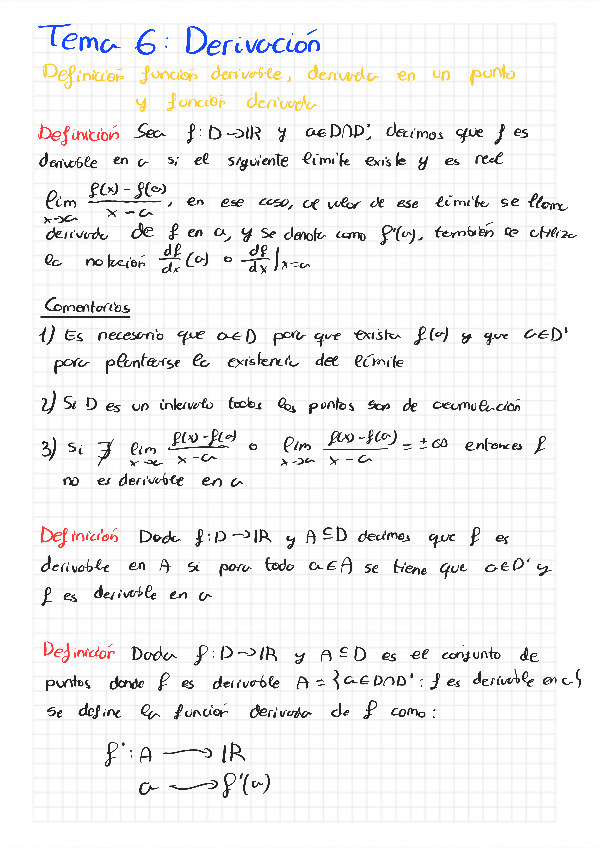 Tema 6: Derivación
Definición función derivable, derivada en un punto
y función derivada
Definición Sea f: D→IR y a∈D∩D', decimos que f es
derivable en a si el siguiente límite existe y es real
lim x→a (f(x) - f(a))/(x - a), en ese caso, al valor de ese límite se llama
derivada de f en a, y se denota como f'(a), también se utiliza
la notación df/dx (a) o df/dx |x=a
Comentarios
1) Es necesario que a∈D para que exista f(a) y que a∈D'
para plantearse la existencia del límite
2) Si D es un intervalo todos los puntos son de acumulación
3) Si ∄ lim x→a (f(x) - f(a))/(x - a) o lim x→a (f(x) - f(a))/(x - a) = ±∞ entonces f
no es derivable en a
Definición Dada f: D→IR y A⊆D decimos que f es
derivable en A si para todo a∈A se tiene que a∈D' y
f es derivable en a
Definición Dada f: D→IR y A⊆D es el conjunto de
puntos donde f es derivable A = {a∈D∩D' : f es derivable en a}
se define la función derivada de f como:
f': A ⟶ IR
a ⟶ f'(a)